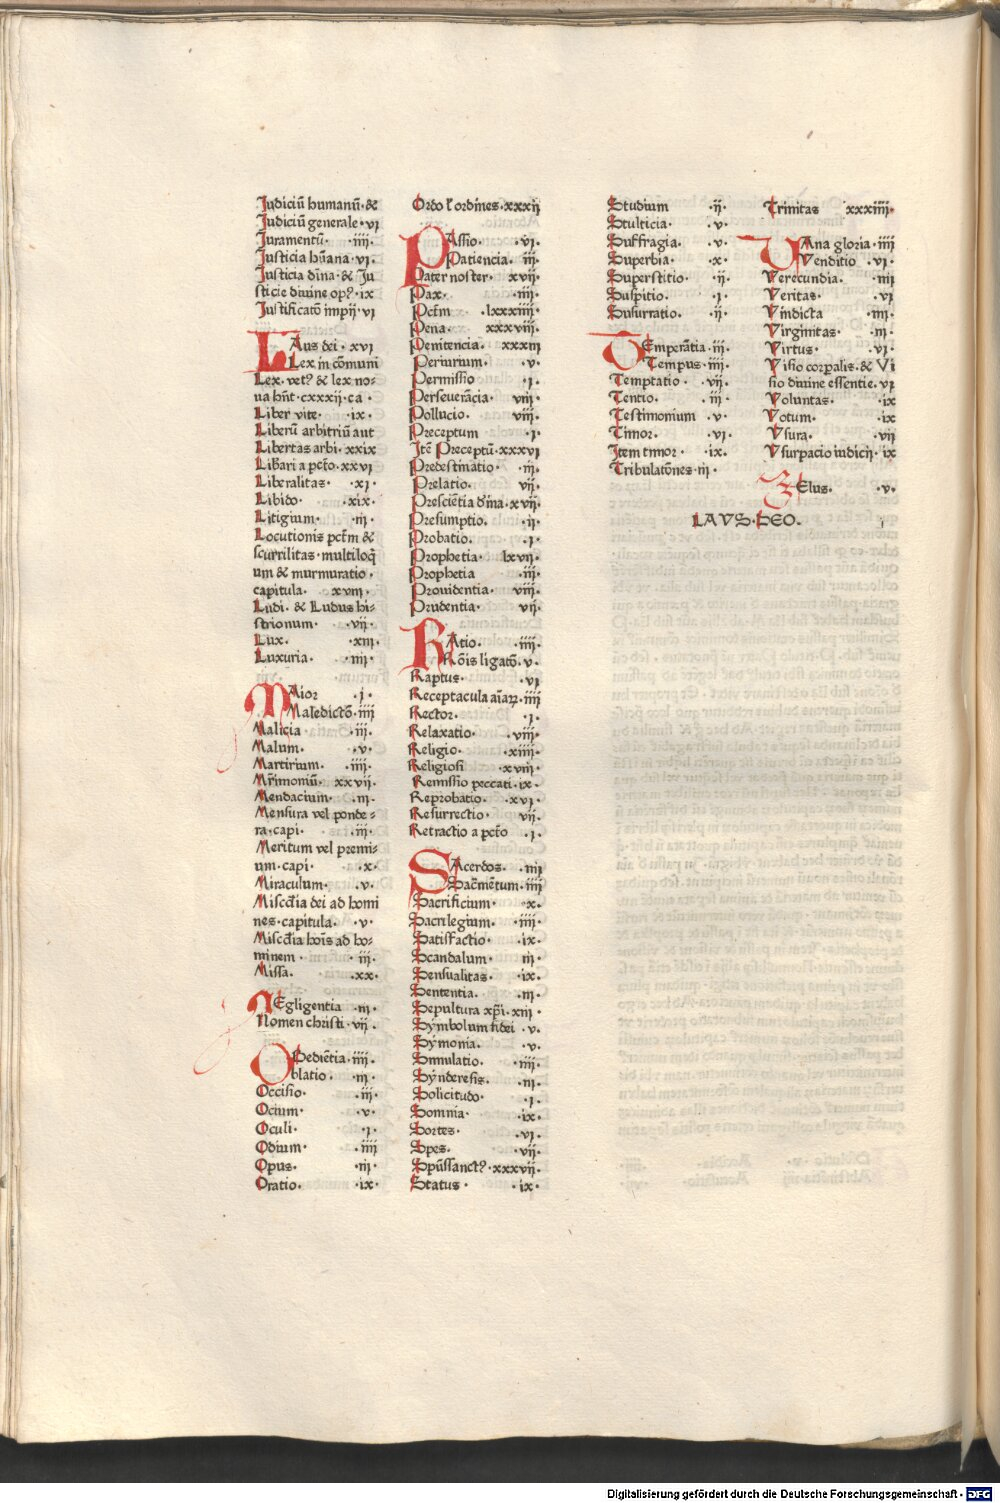 Judiciū humanū· &
Judiciū generale· vi
Juramentū· ·iiii·
Justicia hūana· vi·
Justicia dīna· & Ju
sticie diuine opꝰ· ix
Justificatō impij· vi
LAus dei · xvi
Lex in cōmuni
Lex· vetꝰ & lex no-
ua hn̄t· cxxxij· ca ·
Liber vite· ·ix·
Liberū arbitriū aut
Libertas arbi· xxix
Libari a pctō· xxvi
Liberalitas· ·xi·
Libido· ·xix·
Litigium· ·iii·
Locutionis pctm̄ &
scurrilitas· multiloq̄
um & murmuratio ·
capitula· xviii·
Ludi· & Ludus hi-
strionum· ·vii·
Lux· ·xiii·
Luxuria· ·iiii·
MAior ·i·
Maledictō· iiii
Malicia ·iii·
Malum· ·v·
Martirium· ·iiii·
Mr̄imoniū· xxvii·
Mendacium· ·iii·
Mensura vel ponde-
ra· capi· ·iii·
Meritum vel premi-
um· capi· ·x·
Miraculum· ·v·
Misc̄dia dei ad homi
nes· capitula· ·v·
Misc̄dia hoīs ad ho-
minem · iii·
Missa· ·xx·
NEgligentia ·iii·
Nomen christi· vij·
OBediētia· iiii·
oblatio · ·iii·
Occisio· ·iii·
Ocium· ·v·
Oculi· ·i·
Odium· ·iiii
Opus· ·iii·
Oratio· ·ix·
Ordo ł ordines· xxxij
PAssio· ·vi·
Patiencia· iii·
Pater noster· xvij·
Pax· ·iiii·
Pctm̄ ·lxxxiiii·
Pena· xxxviij·
Penitencia· xxxiii
Periurium· ·v·
Permissio ·i·
Perseuerācia· viii·
Pollucio· viij·
Preceptum ·i·
Itē Preceptū· xxxvi
Predestinatio· ·iii·
Prelatio· vij·
Presciētia dīna· xvij·
Presumptio· ·ii·
Probatio· ·i·
Prophetia· lxvij·
Prophetia ·iii·
Prouidentia· viij·
Prudentia· ·vij·
RAtio· ·iiii·
Rōis ligatō· v·
Raptus· ·vi
Receptacula aīaꝝ· iiii
Rector· ·i·
Relaxatio· viij·
Religio· xiiii·
Religiosi ·xviii·
Remissio peccati· ix·
Reprobatio· xvi·
Resurrectio· vij·
Retractio a pctō ·i·
SAcerdos· ·iiii
Sacm̄etum· iiii
Sacrificium· ·x·
Sacrilegium· ·iiii·
Satisfactio· ix·
Scandalum· iii·
Sensualitas· ·ix·
Sententia· ·iii·
Sepultura xp̄i· xiii·
Symbolum fidei ·v·
Symonia· ·v·
Simulatio· ·iiii·
Synderesis· ·iii·
Solicitudo· ·i·
Somnia· ·ix·
Sortes· ·vi·
Spes· ·vij·
Spūssanctꝰ· xxxvij·
Status · ·ix·
Studium ·ij·
Stulticia· ·v·
Suffragia· ·v·
Superbia· ·x·
Superstitio· ·ij·
Suspitio· ·i·
Susurratio· ·ij·
TEmperātia· iii·
Tempus· iiii·
Temptatio· vij·
Tentio· iii·
Testimonium ·v·
Timor· ·vi·
Item timor · ix·
Tribulatōnes· iii·
Trinitas xxxiiii·
VAna gloria· iiii
Venditio· vi·
Verecundia· ·iiii
Veritas· ·vi
Vindicta ·iiii·
Virginitas· ·iii·
Virtus· ·vi·
Visio corꝑalis· & Vi
sio diuine essentie· vi
Voluntas· ·ix
Votum· ·ix
Vsura· ·vij
Vsurpacio iudicij· ix
ZElus· ·v·
LAVS·DEO·
Digitalisierung gefördert durch die Deutsche Forschungsgemeinschaft - DFG